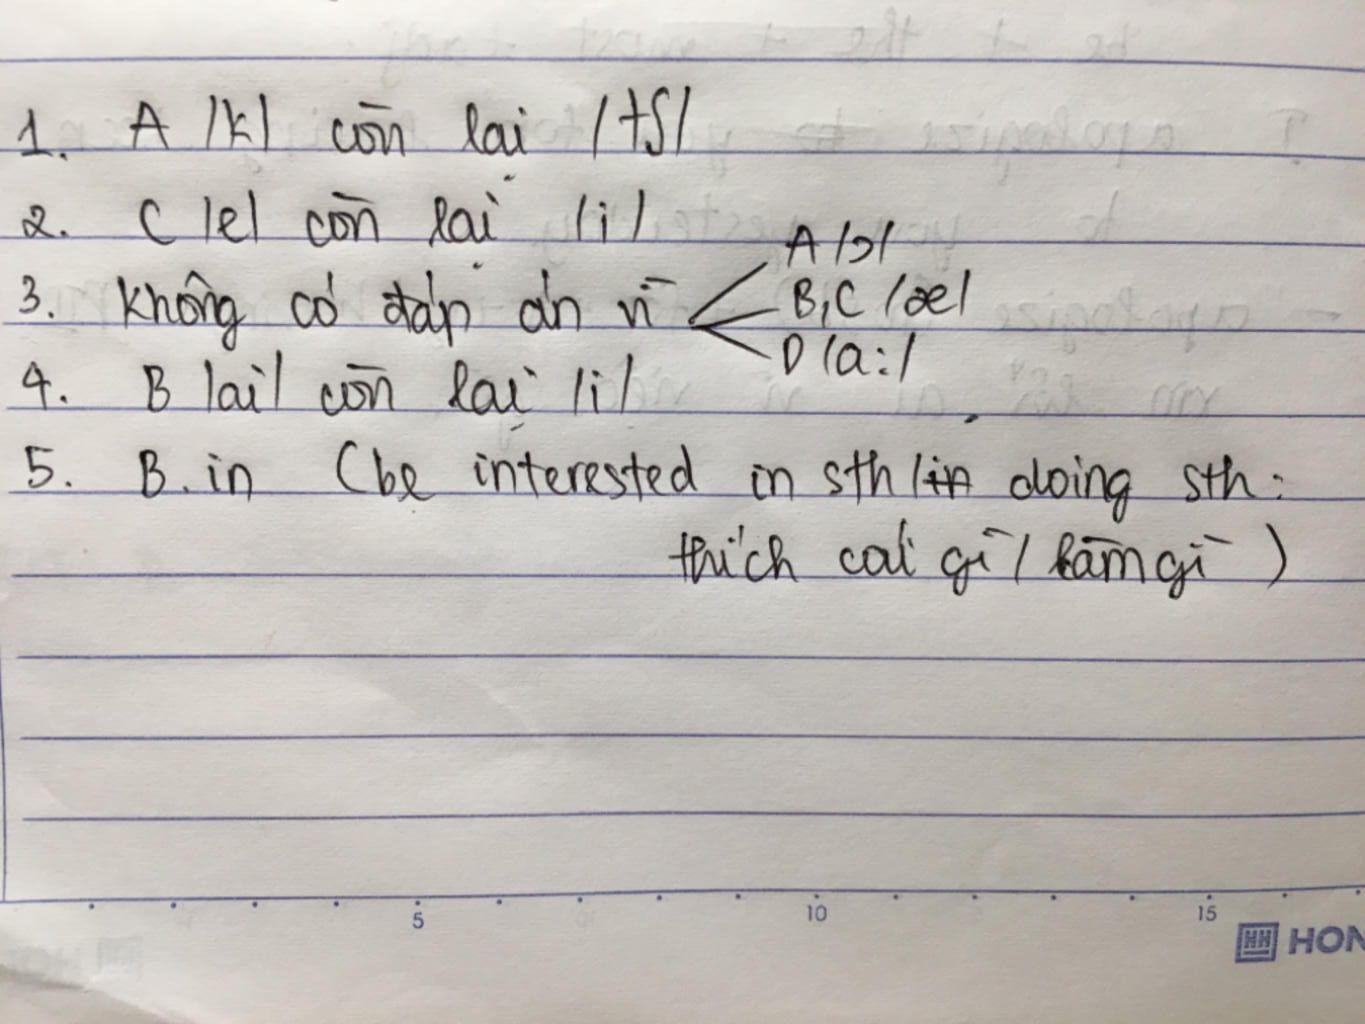 1. A /k/ còn lại /tʃ/
2. C /e/ còn lại /i/
3. Không có đáp án vì
A /ɔ/
B,C /æ/
D /a:/
4. B /ai/ còn lại /i/
5. B. in (be interested in sth/in doing sth:
thích cái gì / làm gì)
5 10 15
HH HON